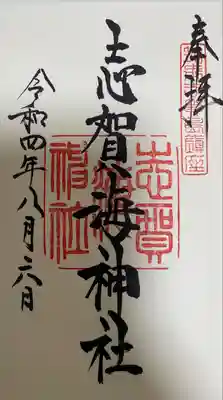 奉拝
島鎮座
志賀海神社
志賀
海
神社
令和四年八月六日